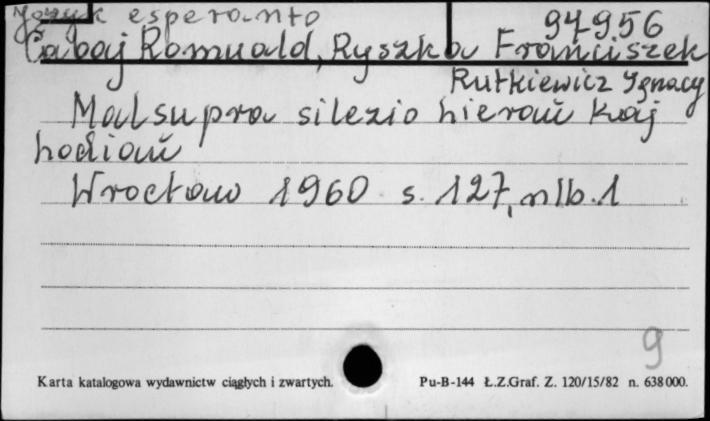 Język esperanto
94956
Cabaj Romuald, Ryszka Franciszek
Rutkiewicz Ignacy
Malsupra silezio hieraŭ kaj
hodiaŭ
Wrocław 1960 s. 127, nlb. 1
9
Karta katalogowa wydawnictw ciągłych i zwartych.
Pu-B-144 Ł.Z.Graf. Z. 120/15/82 n. 638000.